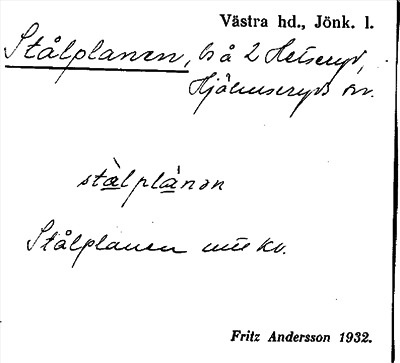 Västra hd., Jönk. l.
Stålplanen, ls å 2 Hetseryd,
Hjälmseryds sn.
stålplánən
Stålplanen
Fritz Andersson 1932.